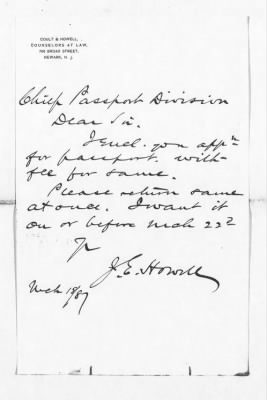 COULT & HOWELL,
COUNSELORS AT LAW,
790 BROAD STREET,
NEWARK, N. J.
Chief Passport Division
Dear Sir.
I encl. you appn
for passport. with
fee for same.
Please return same
at once. I want it
on or before Mch 22d
J. E. Howell
Mch 18/87